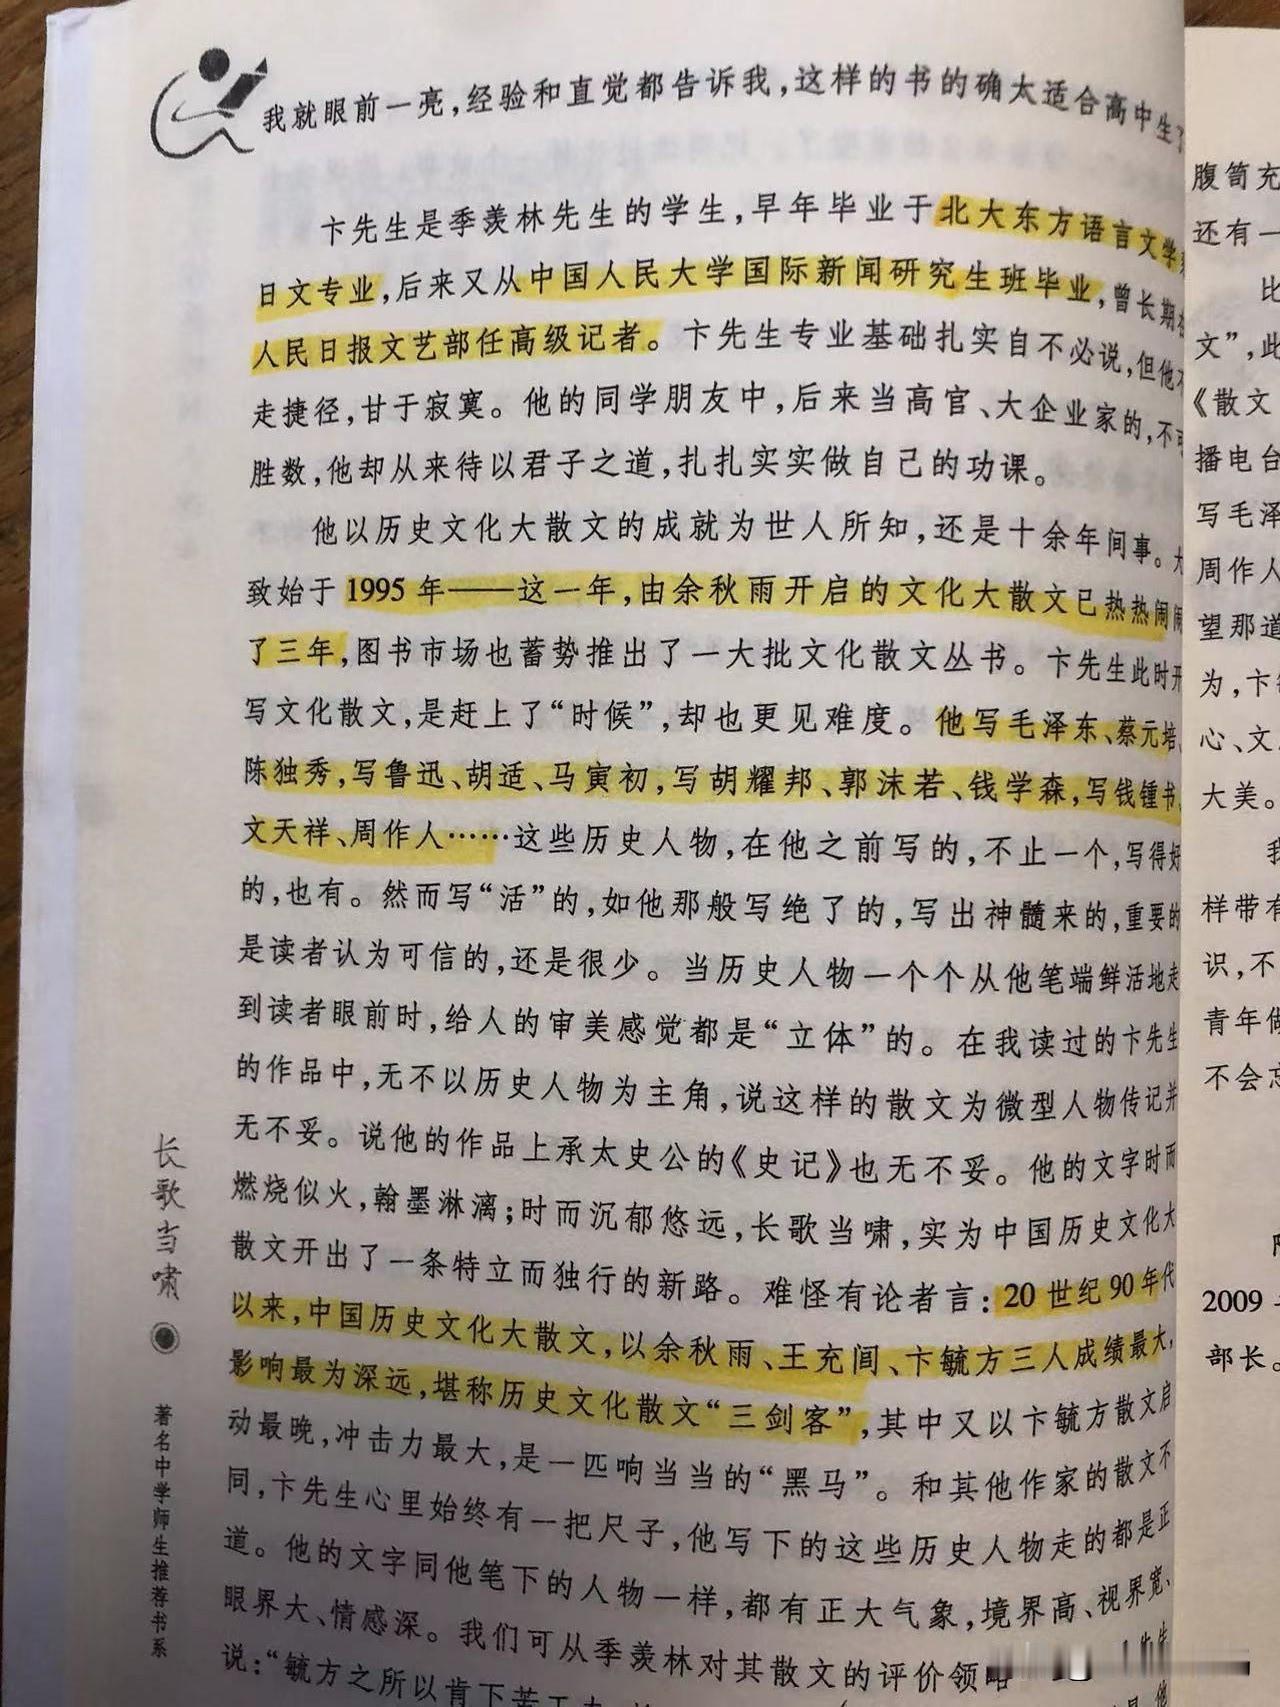 我就眼前一亮，经验和直觉都告诉我，这样的书的确太适合高中生了
卞先生是季羡林先生的学生，早年毕业于北大东方语言文学系
日文专业，后来又从中国人民大学国际新闻研究生班毕业，曾长期在
人民日报文艺部任高级记者。卞先生专业基础扎实自不必说，但他不
走捷径，甘于寂寞。他的同学朋友中，后来当高官、大企业家的，不可
胜数，他却从来待以君子之道，扎扎实实做自己的功课。
他以历史文化大散文的成就为世人所知，还是十余年间事。大
致始于1995年——这一年，由余秋雨开启的文化大散文已热热闹闹
了三年，图书市场也蓄势推出了一大批文化散文丛书。卞先生此时开
写文化散文，是赶上了“时候”，却也更见难度。他写毛泽东、蔡元培、
陈独秀，写鲁迅、胡适、马寅初，写胡耀邦、郭沫若、钱学森，写钱锺书、
文天祥、周作人……这些历史人物，在他之前写的，不止一个，写得好
的，也有。然而写“活”的，如他那般写绝了的，写出神髓来的，重要的
是读者认为可信的，还是很少。当历史人物一个个从他笔端鲜活地走
到读者眼前时，给人的审美感觉都是“立体”的。在我读过的卞先生
的作品中，无不以历史人物为主角，说这样的散文为微型人物传记并
无不妥。说他的作品上承太史公的《史记》也无不妥。他的文字时而
燃烧似火，翰墨淋漓；时而沉郁悠远，长歌当啸，实为中国历史文化大
散文开出了一条特立而独行的新路。难怪有论者言：20世纪90年代
以来，中国历史文化大散文，以余秋雨、王充闾、卞毓方三人成绩最大，
影响最为深远，堪称历史文化散文“三剑客”，其中又以卞毓方散文启
动最晚，冲击力最大，是一匹响当当的“黑马”。和其他作家的散文不
同，卞先生心里始终有一把尺子，他写下的这些历史人物走的都是正
道。他的文字同他笔下的人物一样，都有正大气象，境界高、视界宽、
眼界大、情感深。我们可从季羡林对其散文的评价领略
说：“毓方之所以肯下苦工夫
长歌当啸
著名中学师生推荐书系
腹笥充
还有一
比
文”，此
《散文
播电台
写毛泽
周作人
望那道
为，卞
心、文
大美。
我
样带有
识，不
青年做
不会忘
2009
部长。